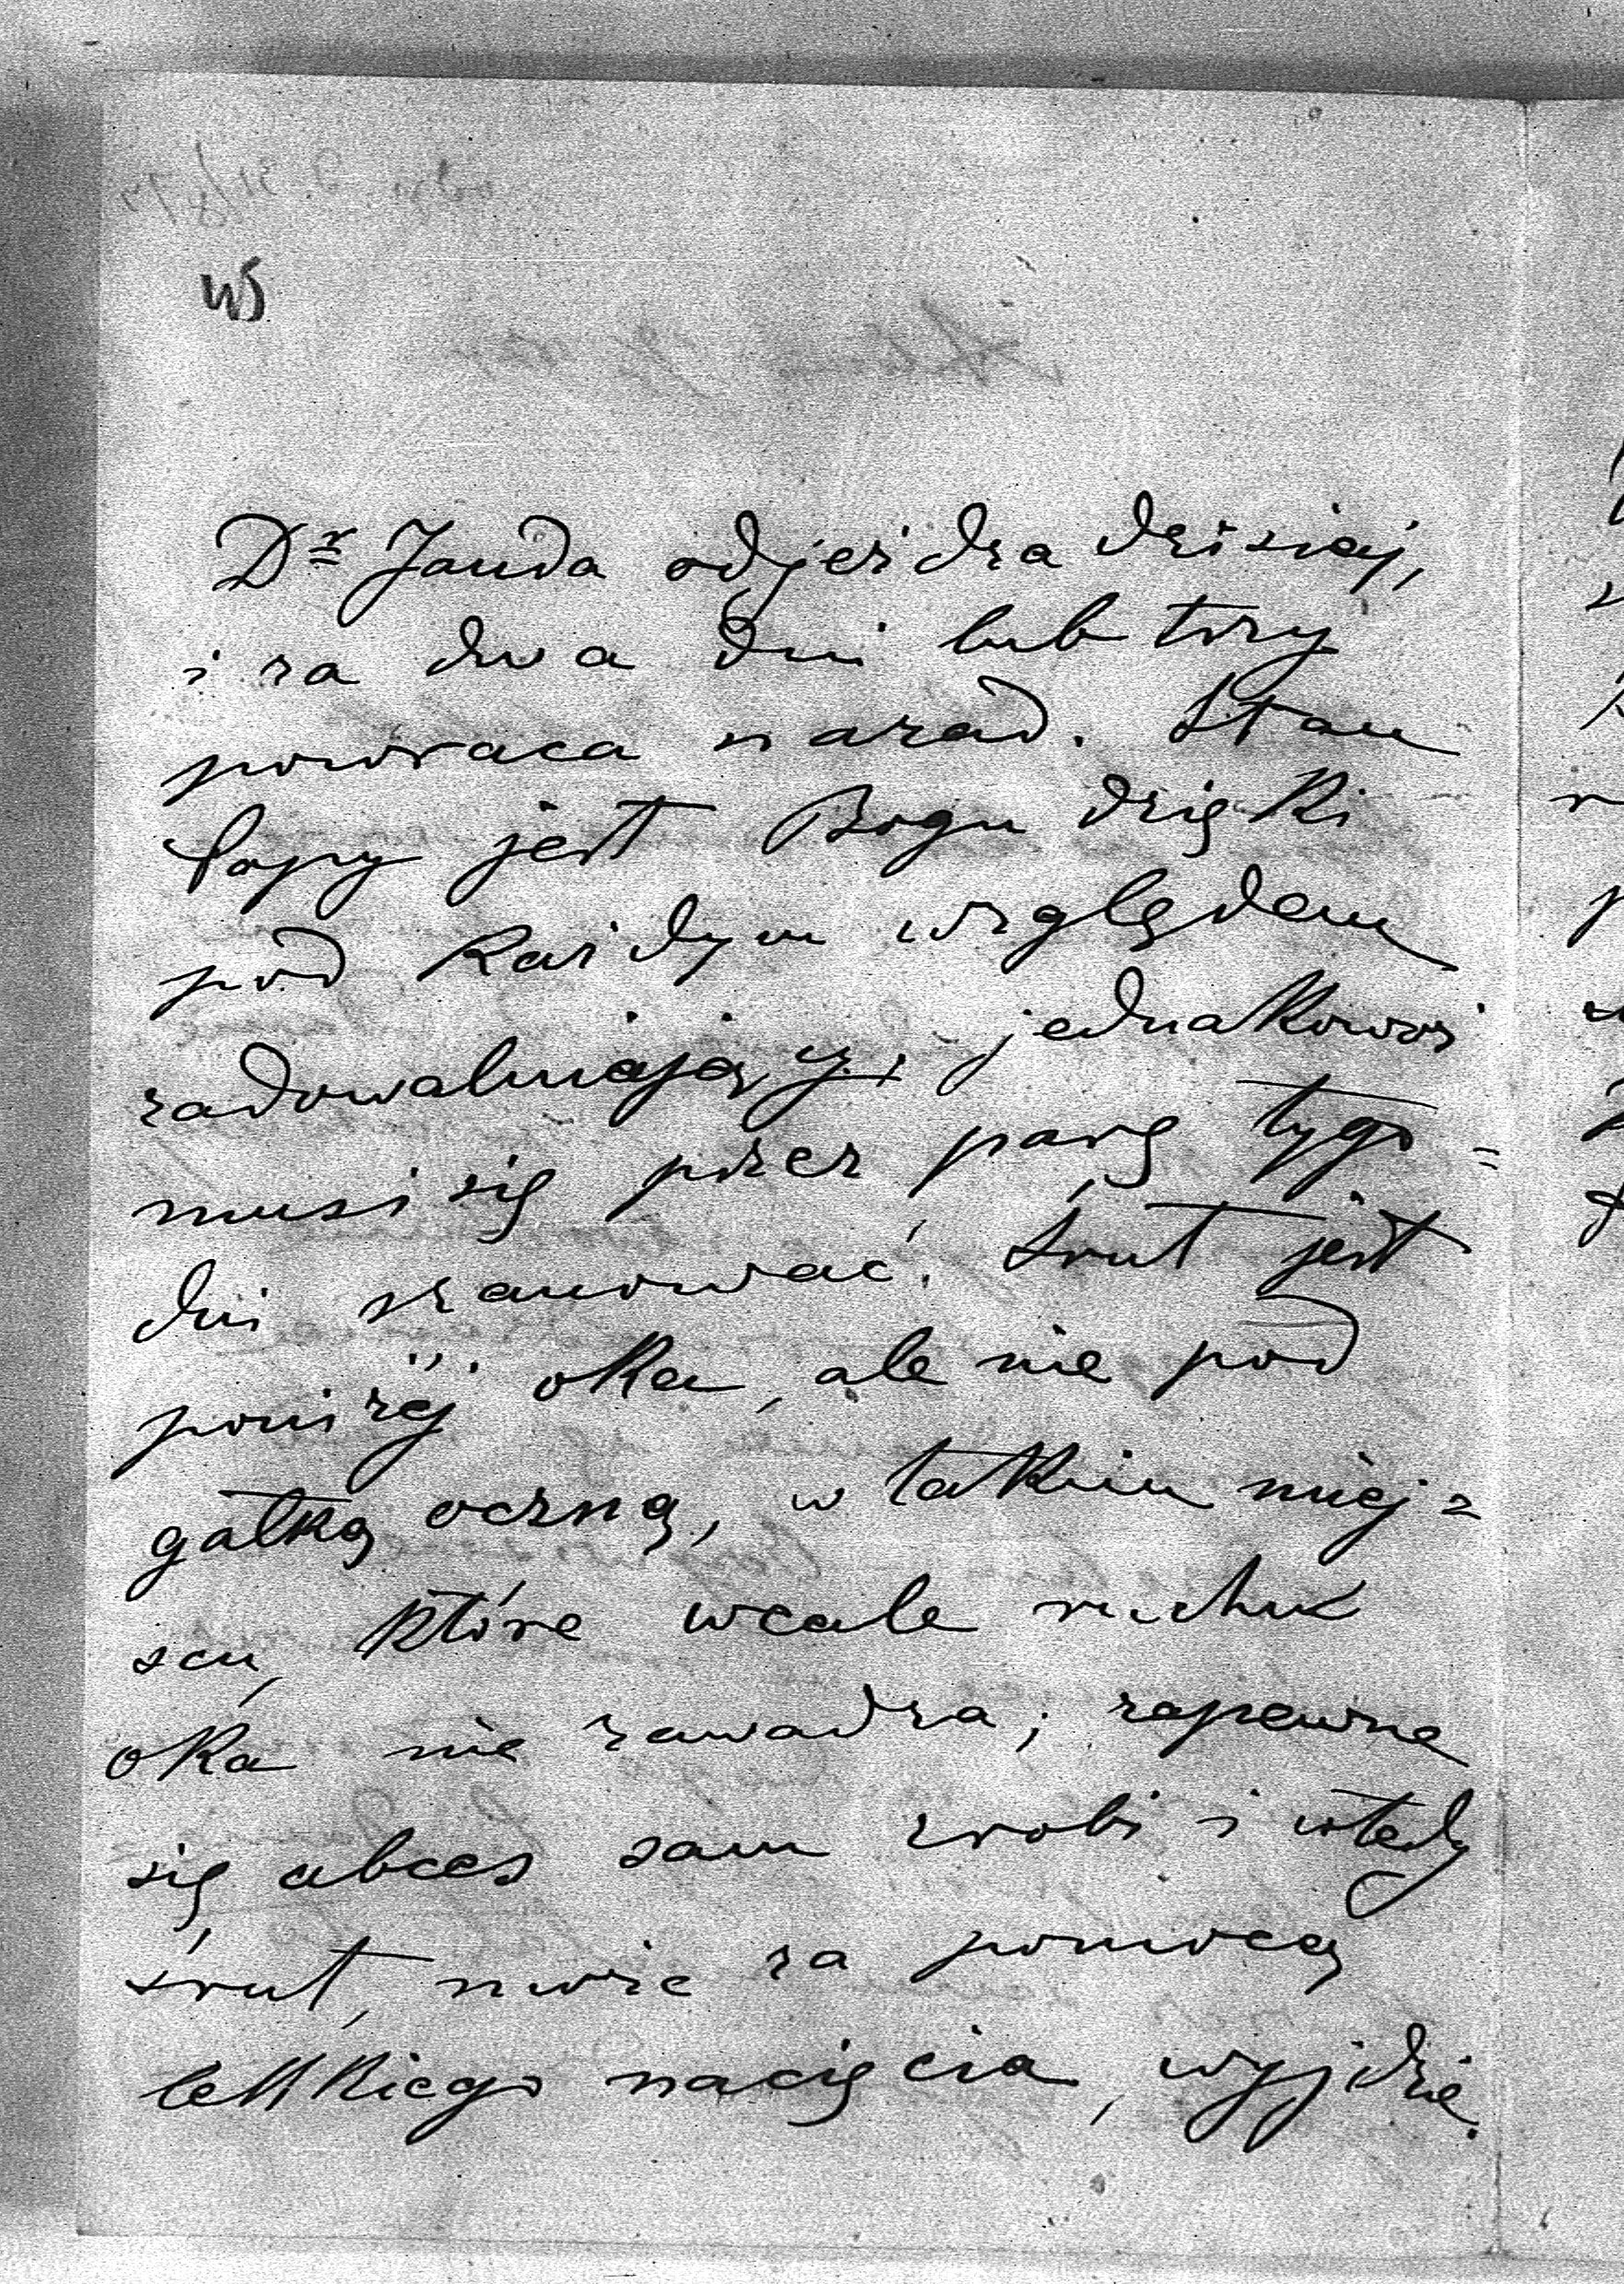 W5
Dr Janda odjeżdża dzisiaj,
i za dwa dni lub trzy
powraca nazad. Stan
Papy jest Bogu dzięki
pod każdym względem
zadowalniający, jednakowoż
musi się przez parę tygo=
dni szanować. Śrut jest
poniżej oka, ale nie pod
gałką oczną, w takim miej=
scu, które wcale ruchu
oka nie zawadza; zapewne
się abces sam zrobi i wtedy
śrut, może za pomocą
lekkiego nacięcia, wyjdzie.